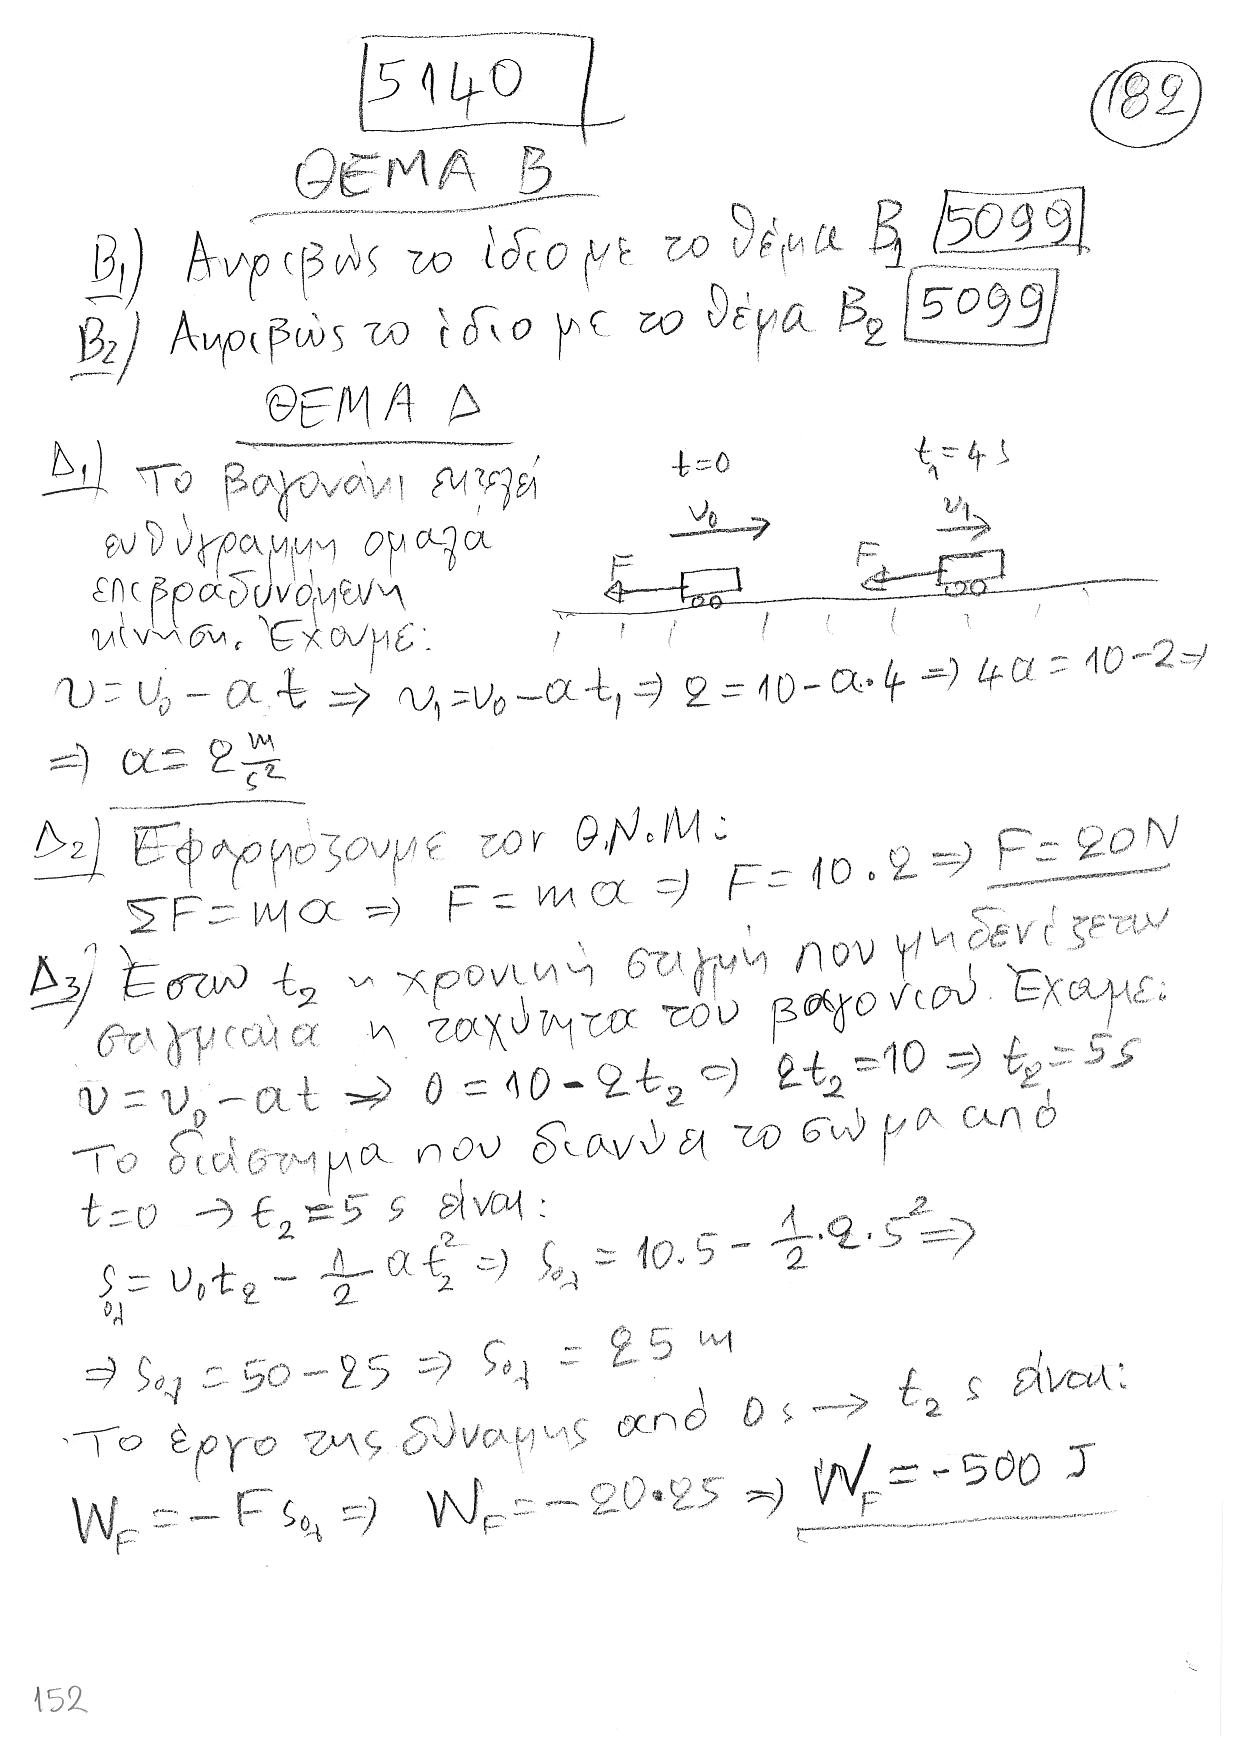 5140
182
ΘΕΜΑ Β
Β1) Ακριβώς το ίδιο με το θέμα Β1 5099
Β2) Ακριβώς το ίδιο με το θέμα Β2 5099
ΘΕΜΑ Δ
Δ1) Το βαγονάκι εκτελεί
ευθύγραμμη ομαλά
επιβραδυνόμενη
κίνηση. Έχουμε:
t=0
t1=4s
υ0
υ1
F
F
υ=υ0-αt ⇒ υ1=υ0-αt1 ⇒ 2=10-α·4 ⇒ 4α=10-2 ⇒
⇒ α=2 m/s²
Δ2) Εφαρμόζουμε τον Θ.Ν.Μ:
ΣF=mα ⇒ F=mα ⇒ F=10·2 ⇒ F=20N
Δ3) Έστω t2 η χρονική στιγμή που μηδενίζεται
στιγμιαία η ταχύτητα του βαγονιού. Έχουμε:
υ=υ0-αt ⇒ 0=10-2t2 ⇒ 2t2=10 ⇒ t2=5s
Το διάστημα που διανύει το σώμα από
t=0 → t2=5 s είναι:
Sολ=υ0t2 - 1/2 αt2² ⇒ Sολ=10·5 - 1/2·2·5² ⇒
⇒ Sολ=50-25 ⇒ Sολ=25 m
Το έργο της δύναμης από 0 s → t2 s είναι:
WF=-F Sολ ⇒ WF=-20·25 ⇒ WF=-500 J
152